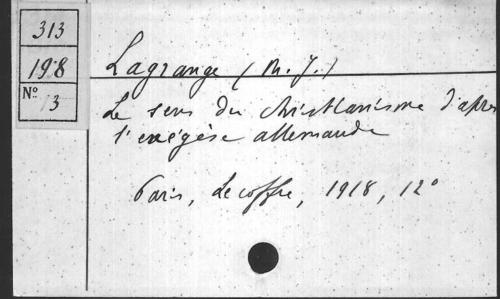 313
198
Nº 13
Lagrange (M. J.)
Le sens du christianisme d'après
l'exégèse allemande
Paris, Lecoffre, 1918, 12°